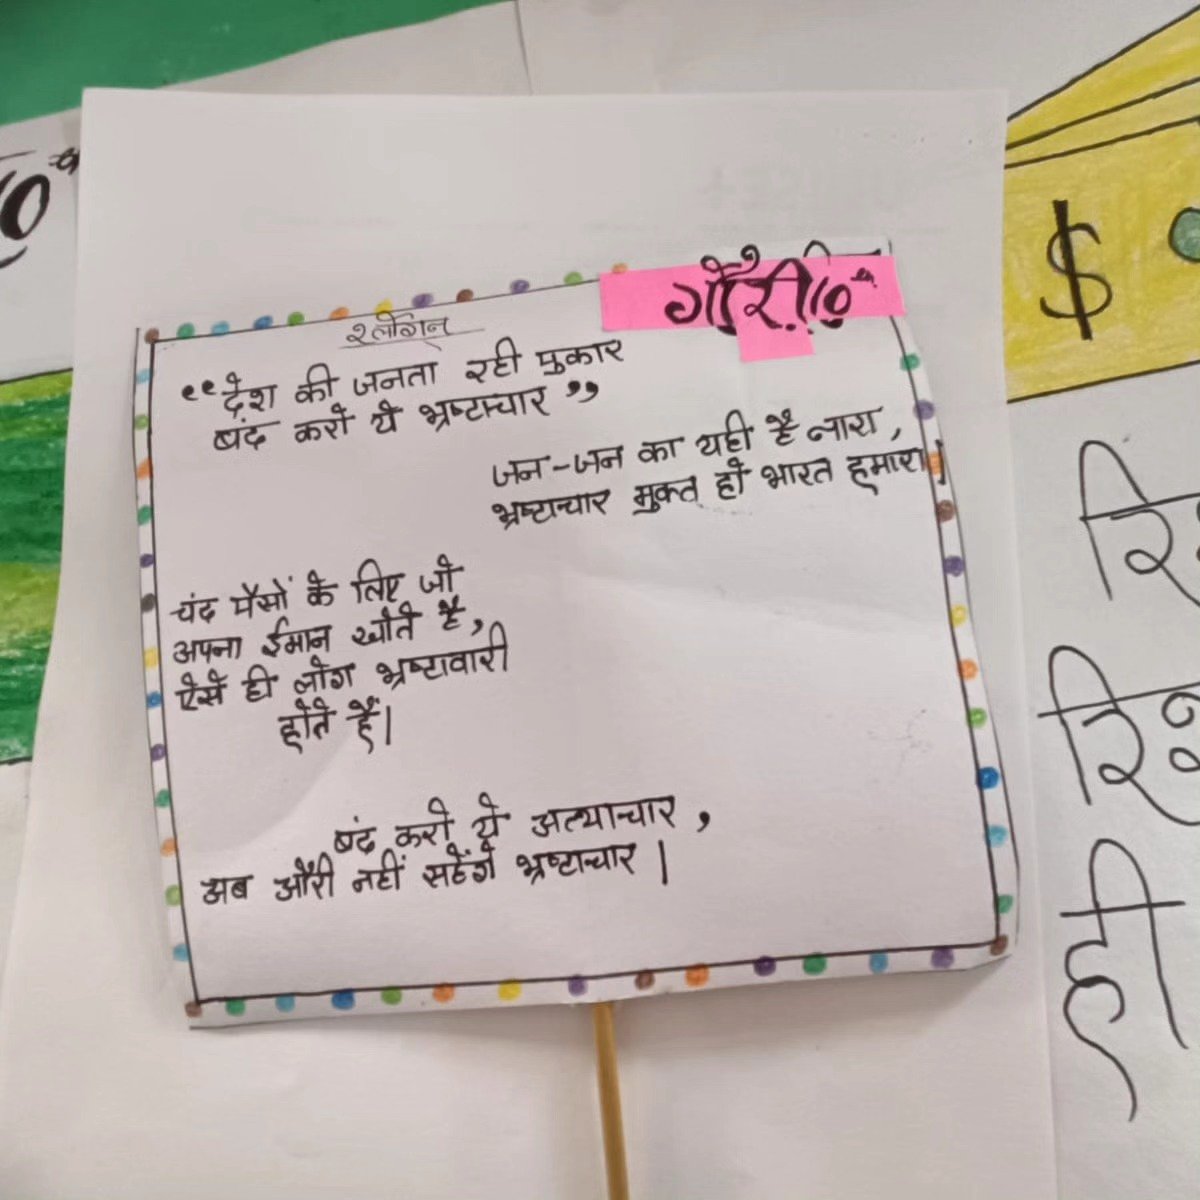 गौरी 10
स्लोगन
“देश की जनता रही पुकार
बंद करो ये भ्रष्टाचार”
जन-जन का यही है नारा,
भ्रष्टाचार मुक्त हो भारत हमारा।
चंद पैसों के लिए जो
अपना ईमान खोते है,
ऐसे ही लोग भ्रष्टाचारी
होते हैं।
बंद करो ये अत्याचार,
अब औरी नहीं सहेंगे भ्रष्टाचार।
$
ही